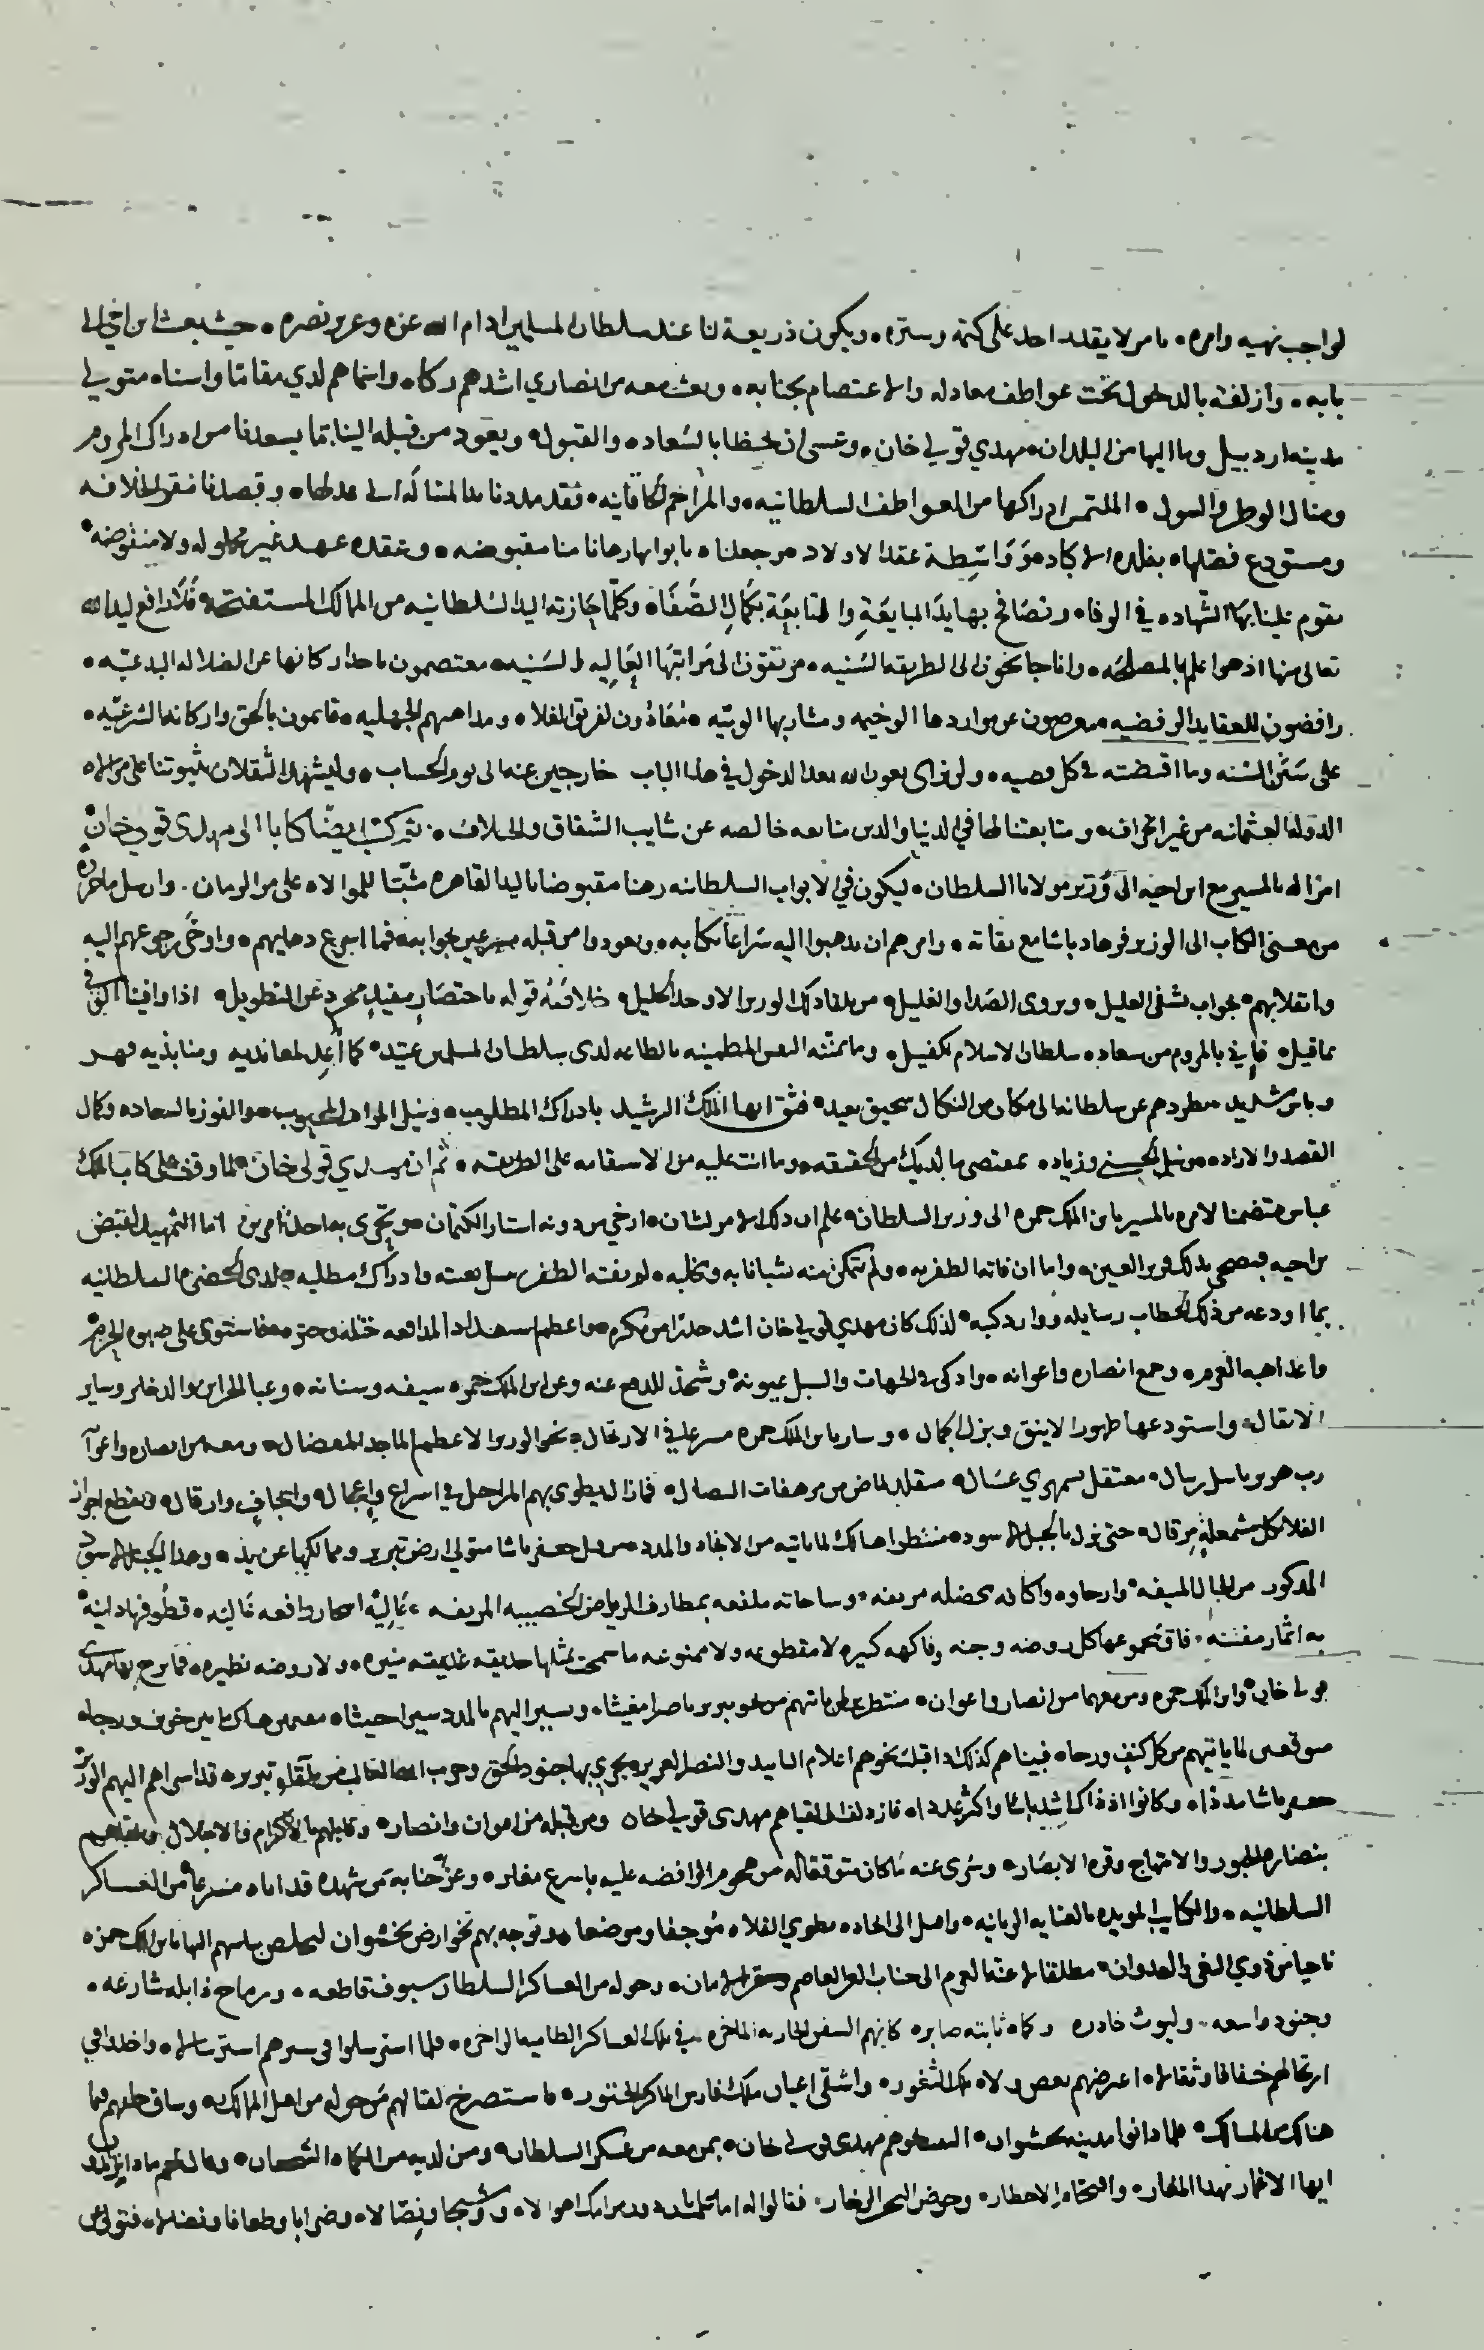 لواجب نهيه وامره، بامر لا يقدر احد على كتمه وستره، ويكون ذريعة لنا عند سلطان المسلمين ادام الله عزه وعزيز نصره، حيث بعث ابن اخي الى
بابه، وازلفته بالدخول تحت عواطف معادله والاعتصام بجنابه، وبعث معه من انصاري اشدهم ركنا، واسماهم لدي مقاما واسنا، متولي
مدينة اردبيل وما اليها من البلدان، مهدي قولي خان، وعسى ان يحظا بالسعاده والقبول، ويعود من قبله الينا بما يسعدنا من ادراك المروم
ومنال الوطر والسول، الملتمس ادراكها من العواطف السلطانيه، والمراحم الخاقانيه، فقد مددنا يد المسالمه الى عدلها، وقصدنا مقر الخلافه
ومستودع فضلها، بفلذه الاكباد، وواسطة عقد الاولاد، من جعلناه بابوابها رهانا منا مقبوضه، وعقده عهد غير محلوله ولا منقوضه
يقوم علينا بها الشهاده في الوفاء، وتصافح بها يد المبايعة والمتابعة بكمال الصفاء، وكلما حازته اليد السلطانيه من الممالك المستفتحه، فلا دافع ليد الله
تعالى منها اذ هو اعلم بالمصلحه، وانا جانحون الى الطريقه السنيه، مرتقون الى مراتبها العاليه السنيه، معتصمون باحد اركانها عن الضلاله البدعيه،
رافضون للعقايد الرفضيه، معرضون عن مواردها الوخيمه ومشاربها الوبيه، معاذون لفريق الضلال، ومذاهبهم الجهليه، قايمون بالحق واركانه الشرعيه،
على سنن السنه وما اقتضته في كل قضيه، ولن نرى بعون الله بعد الدخول في هذا الباب خارجين عنه الى يوم الحساب، وليشهد الثقلان بثبوتنا على موالاه
الدوله العثمانيه من غير انحراف، ومتابعتنا لها في الدنيا والدين متابعه خالصه عن شايب الشقاق والخلاف، ثم كتب ايضا كتابا الى مهدي قولي خان
امرا له بالمسير مع ابن اخيه الى وزير مولانا السلطان، ليكون في الابواب السلطانيه رهنا مقبوضا باليد القاهره مثبتا للموالاه على مر الزمان، وارسل ما حرره
من معنى الكتاب الى الوزير فرهاد باشا مع ثقاته، وامرهم ان يذهبوا اليه سراعا بكتابه، ويعودوا من قبله مسرعين بجوابه، فما اسرع ذهابهم، واوحى رجوعهم اليه
وانقلابهم، بجواب يشفي العليل، ويروي الصدا والغليل، من تلقا ذلك الوزير الاوحد الجليل، خلاصة قوله باختصار مفيد مجرد عن التطويل، اذا وافينا الحق في
ما قيل، فاني بالمروم من سعاده سلطان الاسلام كفيل، وما تمنته النفس المطمئنه بالطاعه لدى سلطان المسلمين عتيد، كما اعد لمعانديه ومنابذيه قهر
وباس شديد، مطردهم عن سلطانه الى مكان من النكال سحيق بعيد، فثق ايها الملك الرشيد بادراك المطلوب، ونيل المراد المحبوب، والفوز بالسعاده وكمال
القصد والاراده، من نيل الحسنى وزياده، بمقتضى ما لديك من الحقيقه، وما انت عليه من الاستقامه على الطريقه، ثم ان مهدي قولي خان، لما وقف على كتاب الملك
عباس متضمنا لامره بالمسير بابن الملك حمزه الى وزير السلطان، علم ان ذلك الامر لشان، ارخي من دونه استار الكتمان، هو يجري به احد امرين اما التمهيد لقبض
من اخيه فيضحى بذلك قرير العين، واما ان فاته الظفر به، ولم يتمكن منه شبا نابه ومخلبه، لم يفته الظفر بنيل بغيته وادراك مطلبه، لدى الحضره السلطانيه
بما اودعه من ذلك الخطاب رسايله ووارد كتبه، لذلك كان مهدي قولي خان اشد حذرا من مكره، واعظم استعدادا لمدافعه ختله وحتره، فاستوى على صهوه الحزم
واعد اهبه العزم، وجمع انصاره واعوانه، واذكى في الجهات والسبل عيونه، وشحذ للدفع عنه وعن ابن الملك حمزه سيفه وسنانه، وعبا الخزاين والدخاير وساير
الاثقال، واستودعها ظهور الاينق وبزل الجمال، وسار بابن الملك حمزه مسرعا في الارتحال، نحو الوزير الاعظم الماجد المفضال، ومعه من انصاره واعوانه
رب هزبر باسل ريبال، معتقل سمهري عسال، متقلد لماض من مرهفات النصال، فما زال يطوي بهم المراحل في اسراع واعجال، وايجاف وارقال، ويقطع اجواز
الفلا بكل مشمعلة مرقال، حتى نزل بالجبل الاسود، منتظرا هنالك لما ياتيه من الانجاد والمدد، من قبل جعفر باشا متولي ارض تبريز وممالكها عن يد، وهذا الجبل الاسود
المذكور من الجبال المنيفه، وارجاوه واكنافه مخضله مريعه، وساحاته ملفعه بمطارف الرياض الخصيبه المريعه، عاليه اشجار يافعه غاليه، قطوفها دانيه
به اثمار مفننه، فاق مجموعها كل روضه وجنه، وفاكهه كثيره لا مقطوعه ولا ممنوعه ما سمحت بمثلها حديقه غديقه منيره، ولا روضه نظيره، فما برح بها مهدي
قولي خان، وابن الملك حمزه ومن معهما من انصار واعوان، منتظرين لما ياتيهم من نحو تبريز ناصرا مغيثا، ويسير اليهم بالمدد سيرا حثيثا، مقيمين هنالك بين خوف ورجاء
متوقعين لما ياتيهم من كل كنف ورجاء، فبينا هم كذلك اذ اقبلت نحوهم اعلام التاييد والنصر العزيز، يجري بها جنود الحق وحزب الله الغالب من تلقاء تبريز، قد اسراهم اليهم الوزير
جعفر باشا مددا، وكانوا اذ ذاك اشد باسا واكثر عددا، فازدلف الى لقياهم مهدي قولي خان ومن قبله من اعوان وانصار، وقابلهم بالاكرام والاجلال وتلقاهم
بنضاره الحبور والابتهاج وقره الابصار، وسري عنه ما كان يتوقعاه من هجوم الرافضه عليه باسرع مغار، وعز جنابه بمن شهده قد اتاه مسرعا من العساكر
السلطانيه، والكتايب المويده بالعنايه الربانيه، واصل الى انجاده، يطوي الفلاه موجفا وموضعا، هو توجه بهم نحو ارض نخشوان ليخلص بباسهم اليها بابن الملك حمزه
ناجيا من ذوي البغي والعدوان، مطلقا لاعنه العزم الى جناب العز العاصم ومقر الامان، وحوله من العساكر السلطانيه سيوف قاطعه، ورماح ذابله شارعه،
وجنود واسعه، وليوث خادره، وكماه ثابته صابره كانهم السفن الجاريه الماخره، في تلك العساكر الطاميه الزاخره، فلما استرسلوا في سيرهم استرسالا، واخذوا في
ارتحالهم خفافا وثقالا، اعترضهم بعض ولاه تلك الثغور، واشقى اعيان ملك فارس الماكر الختور، فاستصرخ لقتالهم من حوله من اهل الممالك، وساق خيلهم فيما
هنالك من المسالك، فلما دانوا مدينه نخشوان، التقاهم مهدي قولي خان، بمن معه من عسكر السلطان، ومن لديه من الكماه الشجعان، وقال لهم ماذا
ايها الاغمار بهذا المغار، واقتحام الاخطار، وخوض البحر الزخار، فقالوا له اما ودون مرامك اهوالا، ووشيجا ونصالا، وضرابا وطعانا ونضالا، فتولى عن